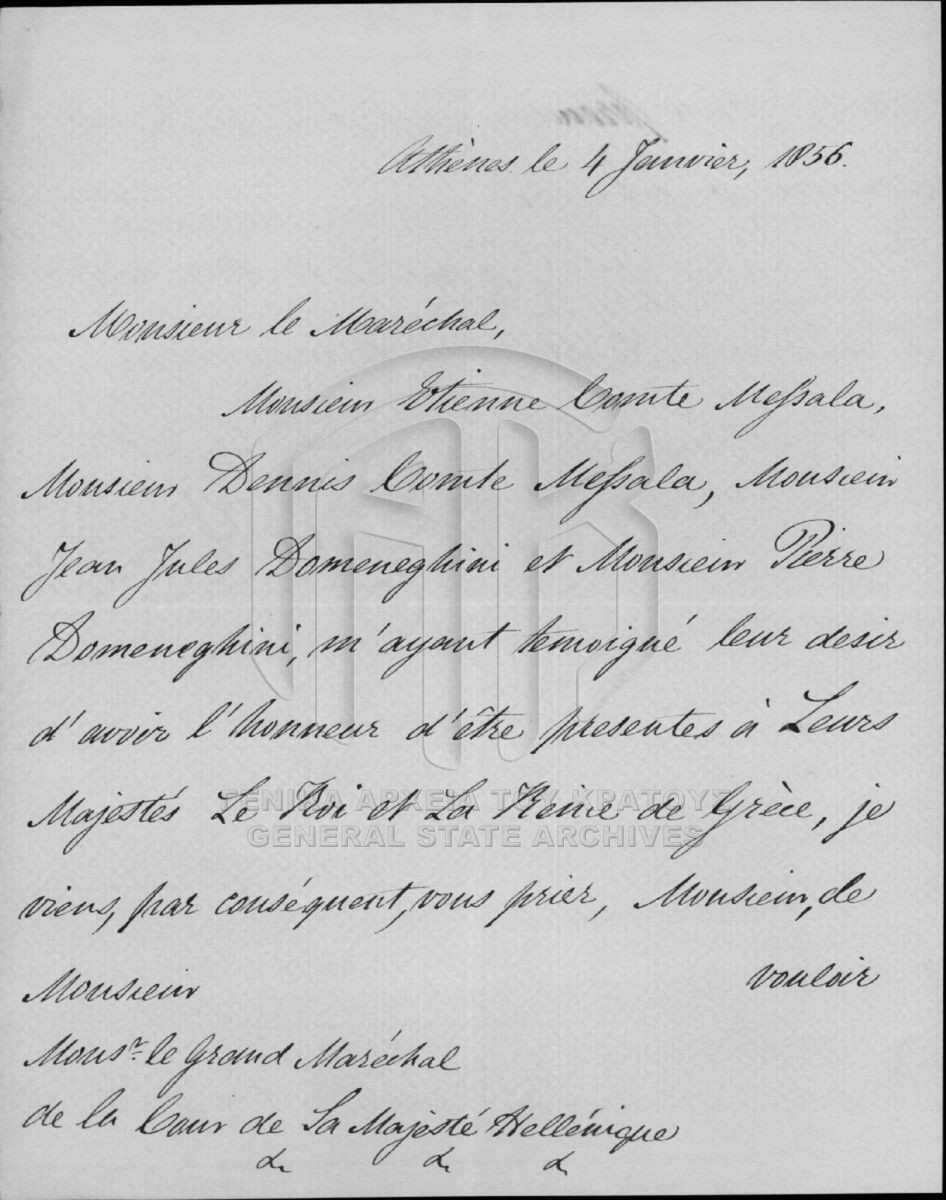 Athènes le 4 Janvier, 1856.
Monsieur le Maréchal,
Monsieur Etienne Comte Messala,
Monsieur Dennis Comte Messala, Monsieur
Jean Jules Domeneghini et Monsieur Pierre
Domeneghini, m'ayant temoigné leur desir
d'avoir l'honneur d'être presentes à Leurs
Majestés Le Roi et La Reine de Grèce, je
ΓΕΝΙΚΑ ΑΡΧΕΙΑ ΤΟΥ ΚΡΑΤΟΥΣ
GENERAL STATE ARCHIVES
viens, par conséquent, vous prier, Monsieur, de
vouloir
Monsieur
Monsr. le Grand Maréchal
de la Cour de Sa Majesté Hellénique